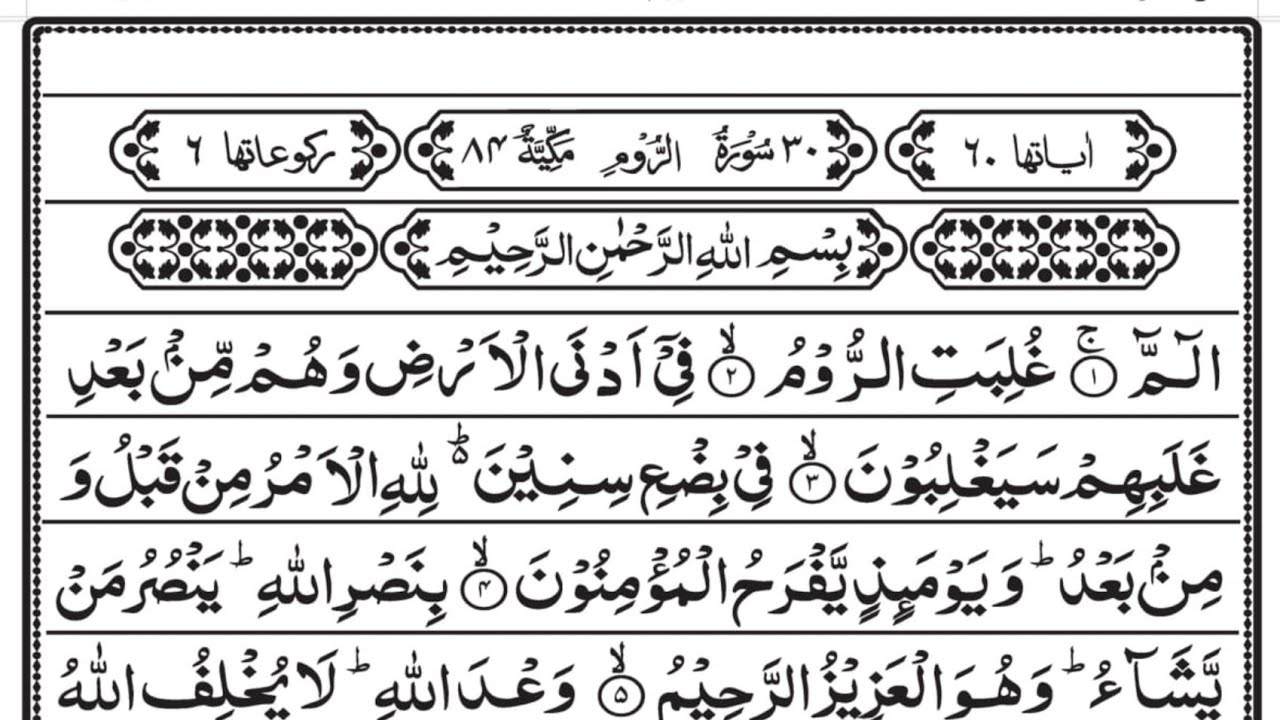 اٰیاتها ٦٠ ٣٠ سُوْرَةُ الرُّوْمِ مَكِّيَّةٌ ٨٤ ركوعاتها ٦
بِسْمِ اللّٰهِ الرَّحْمٰنِ الرَّحِيْمِ
الٓـمّٓ ۚ﴿١﴾ غُلِبَتِ الرُّوْمُ ۙ﴿٢﴾ فِیْۤ اَدْنَى الْاَرْضِ وَهُمْ مِّنْۢ بَعْدِ
غَلَبِهِمْ سَيَغْلِبُوْنَ ۙ﴿٣﴾ فِیْ بِضْعِ سِنِيْنَ ۬ؕ لِلّٰهِ الْاَمْرُ مِنْ قَبْلُ وَ
مِنْۢ بَعْدُ ؕ وَيَوْمَئِذٍ يَّفْرَحُ الْمُؤْمِنُوْنَ ۙ﴿۴﴾ بِنَصْرِ اللّٰهِ ؕ يَنْصُرُ مَنْ
يَّشَآءُ ؕ وَهُوَ الْعَزِيْزُ الرَّحِيْمُ ۙ﴿۵﴾ وَعْدَ اللّٰهِ ؕ لَا يُخْلِفُ اللّٰهُ